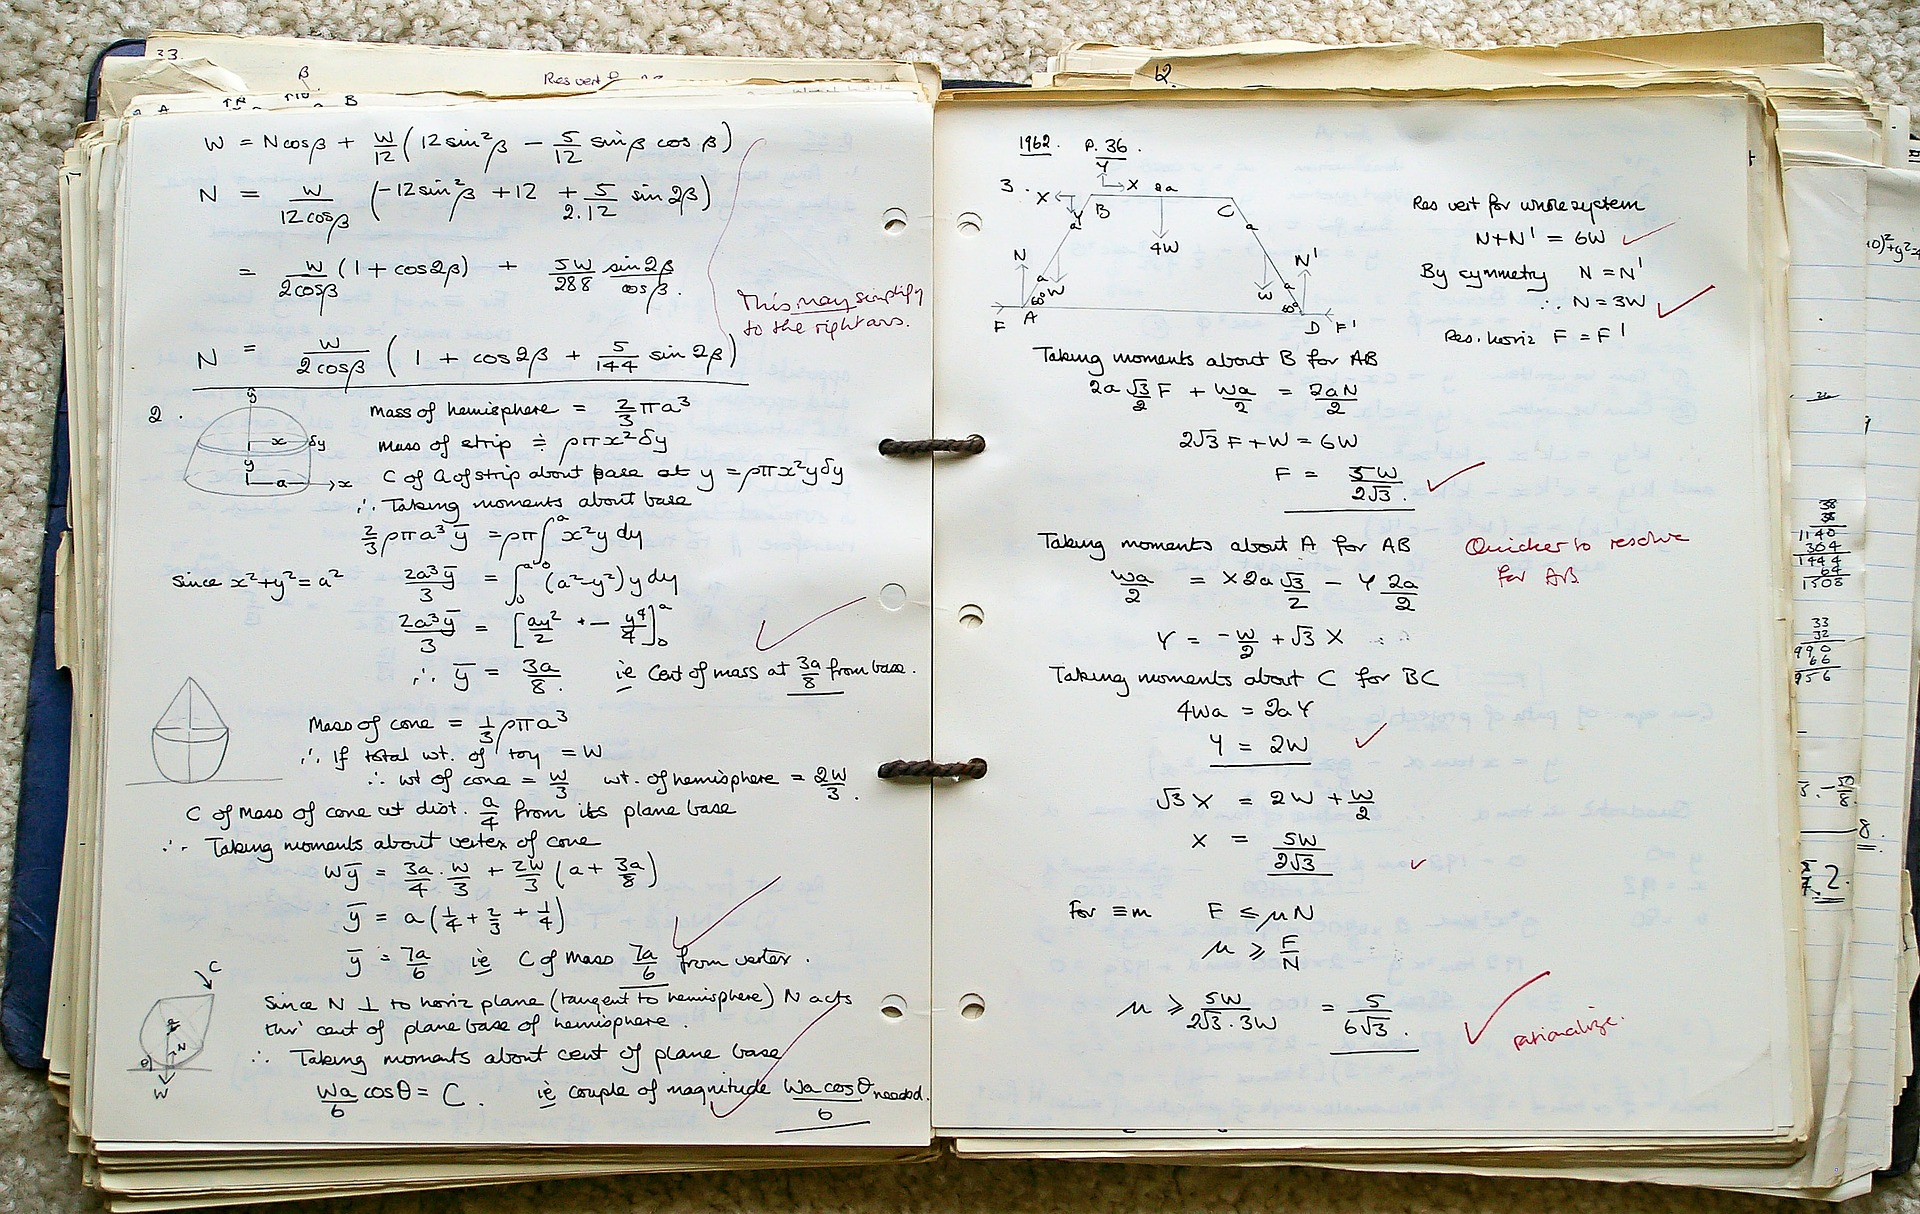 33.
β
Res vert
A
B
W = Ncosβ + W/12 (12sin²β − 5/12 sinβ cosβ)
N = W/12cosβ (−12sin²β + 12 + 5/2.12 sin2β)
= W/2cosβ (1 + cos2β) + 5W/288 sin2β/cosβ.
This may simplify
to the right ans.
N = W/2cosβ (1 + cos2β + 5/144 sin2β)
2.
y
x
δy
y
a
x
Mass of hemisphere = 2/3 πa³
Mass of strip ≑ ρπx²δy
C of G of strip about base at y = ρπx²yδy
∴ Taking moments about base
2/3 ρπa³ȳ = ρπ∫ᵃ x²y dy
Since x²+y²=a² 2a³ȳ/3 = ∫₀ᵃ (a²−y²)y dy
2a³ȳ/3 = [ay²/2 − y⁴/4]₀ᵃ
∴ ȳ = 3a/8. ie Cent of mass at 3a/8 from base.
Mass of cone = 1/3 ρπa³
∴ If total wt. of toy = W
∴ wt of cone = W/3 wt. of hemisphere = 2W/3.
C of Mass of cone at dist. a/4 from its plane base
∴ Taking moments about vertex of cone
Wȳ = 3a/4 . W/3 + 2W/3 (a + 3a/8)
ȳ = a(1/4 + 2/3 + 1/4)
ȳ = 7a/6 ie C of Mass 7a/6 from vertex.
C
θ
N
W
Since N ⊥ to horiz plane (tangent to hemisphere) N acts
thr' cent of plane base of hemisphere.
∴ Taking moments about cent of plane base
Wa/6 cosθ = C. ie couple of magnitude Wa cosθ/6 needed.
12
1962. P. 36.
3.
Y
X
X 2a
Y
B
C
a
a
4W
N
N'
a
W
W
a
60°
60°
F
A
D F'
Res vert for whole system
N+N' = 6W
By symmetry N = N'
∴ N = 3W
Res. horiz F = F'
Taking moments about B for AB
2a √3/2 F + Wa/2 = 2aN/2
2√3 F + W = 6W
F = 5W/2√3.
Taking moments about A for AB
Quicker to resolve
for AB
Wa/2 = X 2a √3/2 − Y 2a/2
Y = −W/2 + √3 X
Taking moments about C for BC
4Wa = 2aY
Y = 2W
√3 X = 2W + W/2
X = 5W/2√3
For ≡m F ≤ μN
μ ≥ F/N
μ ≥ 5W/2√3 . 3W = 5/6√3.
rationalize.
38
38
1140
304
1444
64
1508
33
32
990
66
956
8.
2.